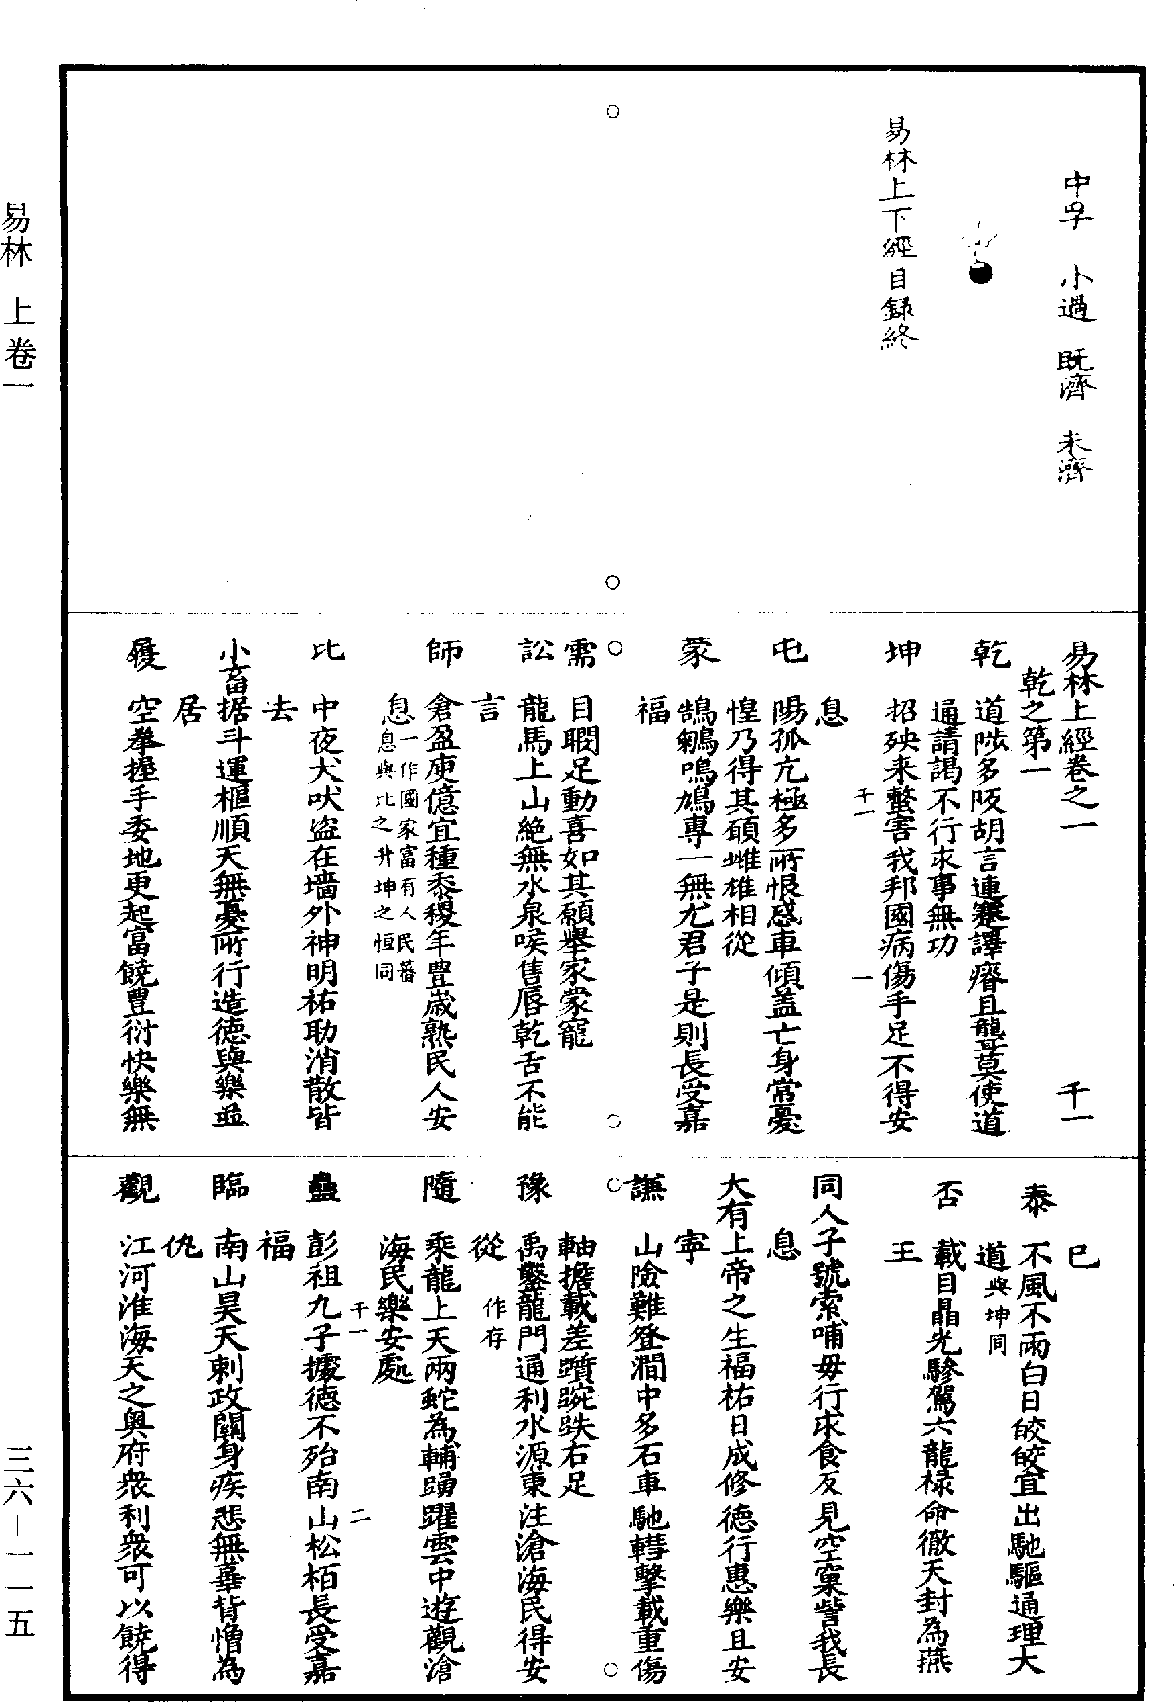 易林 上卷一
三六－一一五
中孚 小過 既濟 未濟
易林上下經目錄終
易林上經卷之一 千一
乾之第一
乾 道陟多阪胡言連蹇譯瘖且聾莫使道
通請謁不行求事無功
坤 招殃来螫害我邦國病傷手足不得安
息
千一 一
屯 陽孤亢極多所恨惑車傾盖亡身常憂
惶乃得其願雌雄相從
蒙 鵠鵴鳴鳩專一無尤君子是則長受嘉
福
需 目瞤足動喜如其願舉家蒙寵
訟 龍馬上山絶無水泉喉焦唇乾舌不能
言
師 倉盈庾億宜種黍稷年豊歲熟民人安
息一作國家富有人民蕃
息與比之升坤之恒同
比 中夜犬吠盗在墻外神明祐助消散皆
去
小畜据斗運樞順天無憂所行造德與樂並
居
履 空拳握手委地更起富饒豊衍快樂無
已
泰 不風不雨白日皎皎宜出馳驅通理大
道與坤同
否 載日晶光驂駕六龍祿命徹天封為燕
王
同人子號索哺毋行求食反見空窠訾我長
息
大有上帝之生福祐日成修德行惠樂且安
寧
謙 山險難登澗中多石車馳轊擊載重傷
軸擔載差躓踠跌右足
豫 禹鑿龍門通利水源東注滄海民得安
從 作存
隨 乘龍上天兩蛇為輔踴躍雲中遊觀滄
海民樂安處
千一 二
蠱 彭祖九子據德不殆南山松栢長受嘉
福
臨 南山昊天刺政關身疾悲無辜背憎為
仇
觀 江河淮海天之奥府衆利衆可以饒得